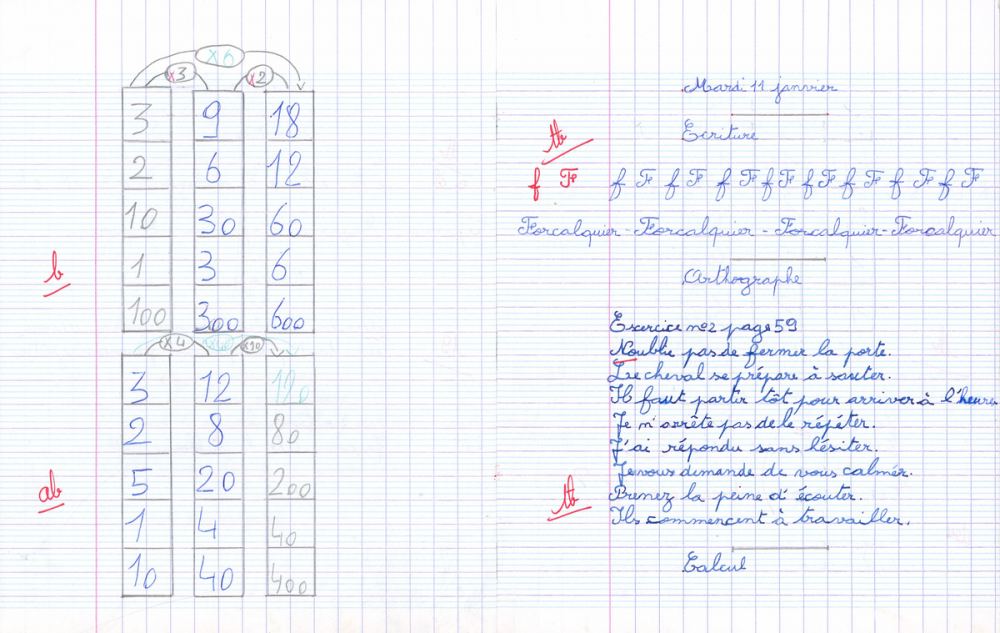 x6
x3 x2
3 9 18
2 6 12
10 30 60
1 3 6
b
100 300 600
x4 x10
3 12 120
2 8 80
5 20 200
ab
1 4 40
10 40 400
Mardi 11 janvier
Ecriture
tb
f F f F f F f F f F f F f F f F
Forcalquier - Forcalquier - Forcalquier - Forcalquier
Orthographe
Exercice n°2 page 59
Noublie pas de fermer la porte.
Le cheval se prépare à sauter.
Il faut partir tôt pour arriver à l'heure
Je n'arrête pas de le répéter.
J'ai répondu sans hésiter.
Je vous demande de vous calmér.
Prenez la peine d'écouter.
tb
Ils commencent à travailler.
Calcul